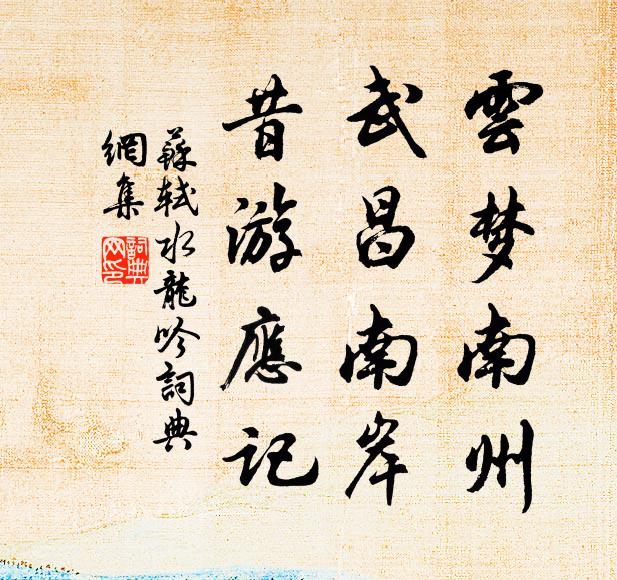 雲梦南州
武昌南岸
昔游應记
蘇軾水龍吟詞典
網集
詞典
网印